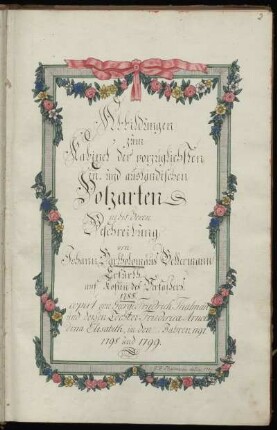 Abbildungen
zum
Kabinet der vorzüglichsten
in- und ausländischen
Holzarten
nebst deren
Beschreibung
von
Johann Bartholomäus Bellermann
Erfurth
auf Kosten des Verfassers
1788
copirt von Georg Friedrich
und dessen Tochter Friederica
Elisabeth, in den Jahren 1791
1798 und 1799.